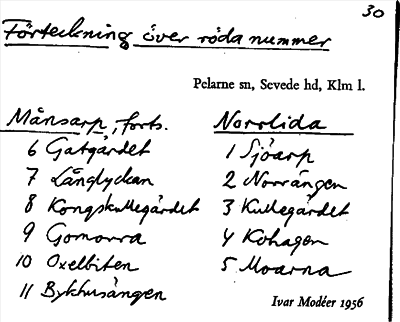 30
Förteckning över röda nummer
Pelarne sn, Sevede hd, Klm l.
Månsarp, forts.
6 Gatgärdet
7 Långlyckan
8 Kongskullegärdet
9 Gomorra
10 Oxelbiten
11 Bykhusängen
Norrlida
1 Sjöarp
2 Norrängen
3 Kullegärdet
4 Kohagen
5 Moarna
Ivar Modéer 1956